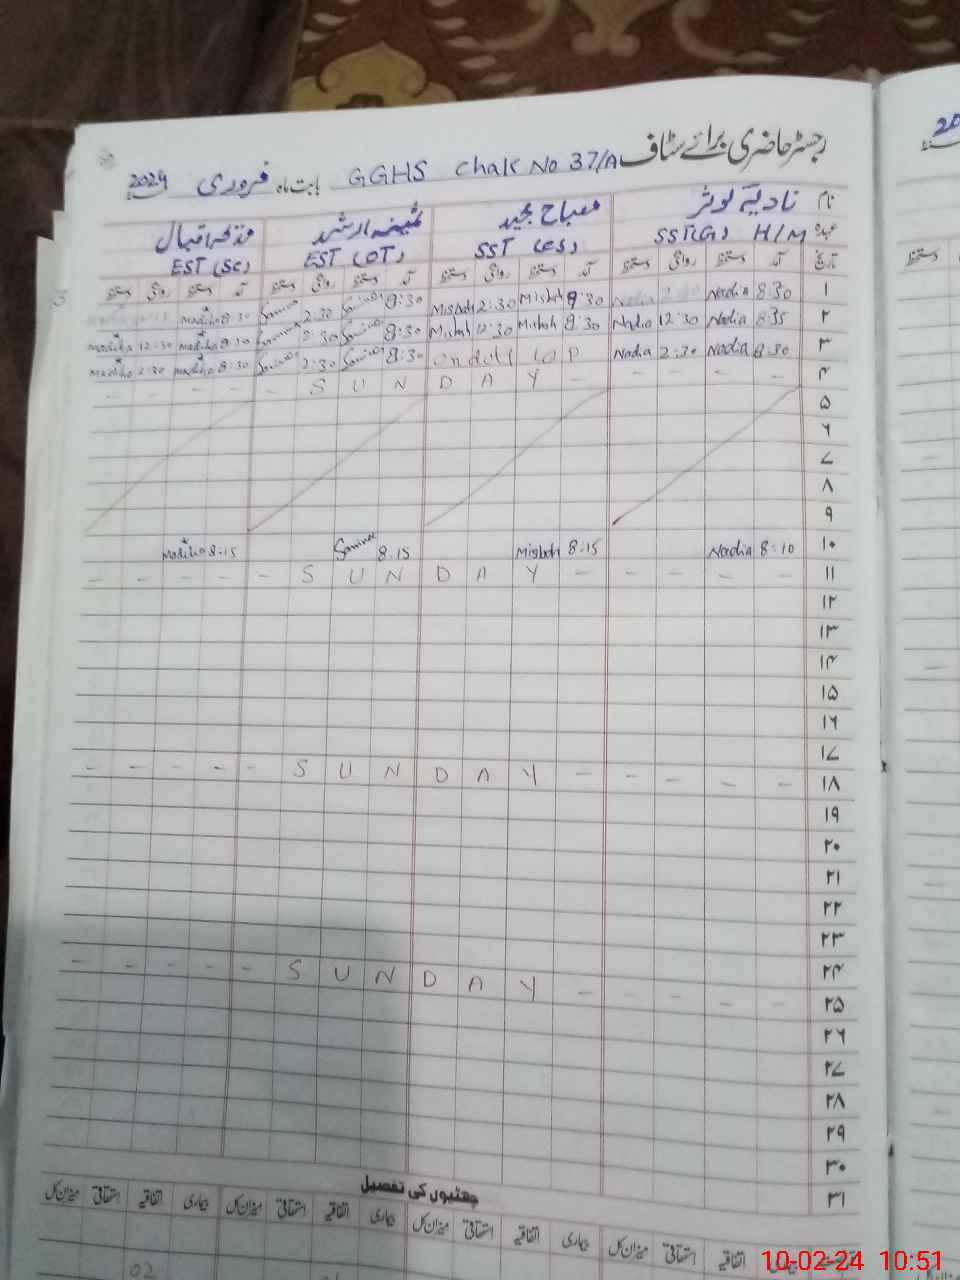 رجسٹر حاضری برائے سٹاف GGHS Chak No 37/A بابت ماہ فروری 2024
نام نادیہ کوثر مصباح مجید ثمینہ ارشد مدیحہ اقبال
عہدہ SST(G) H/M SST (CS) EST (OT) EST (SC)
تاریخ آمد دستخط روانگی دستخط آمد دستخط روانگی دستخط آمد دستخط روانگی دستخط آمد دستخط روانگی دستخط
۱ 8:30 Nadia 8:30 Misbah 2:30 Misbah 8:30 2:30 8:30 Madiha
۲ 8:35 Nadia 12:30 Nadia 8:30 Misbah 12:30 Misbah 8:30 Madiha 12:30 Madiha
۳ 8:30 Nadia 2:30 Nadia on duty 8:30 2:30 8:30 Madiha 2:30 Madiha
۴ - - - - - S U N D A Y - - - - -
۵
۶
۷
۸
۹
۱۰ 8:10 Nadia 8:15 Misbah 8:15 8:15 Madiha
۱۱ - - - - - S U N D A Y - - - - -
۱۲
۱۳
۱۴
۱۵
۱۶
۱۷
۱۸ - - - - - S U N D A Y - - - - -
۱۹
۲۰
۲۱
۲۲
۲۳
۲۴
۲۵ - - - - - S U N D A Y - - - - -
۲۶
۲۷
۲۸
۲۹
۳۰
۳۱
چھٹیوں کی تفصیل
اتفاقیہ استحقاقی میزان کل بیماری اتفاقیہ استحقاقی میزان کل بیماری اتفاقیہ استحقاقی میزان کل بیماری اتفاقیہ استحقاقی میزان کل
02
10-02-24 10:51